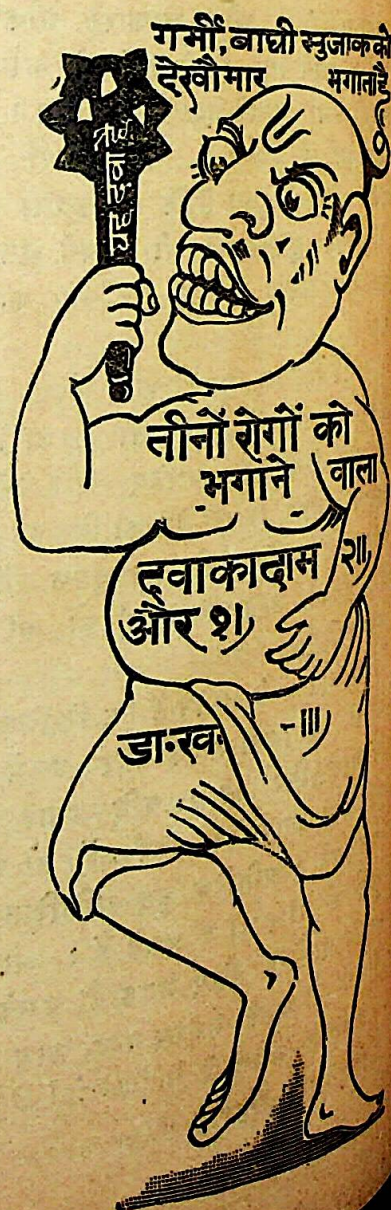 गर्मी, बाघी सुजाक को
देखौ मार भगाता है
यह दवा
तीनों रोगों को
भगाने वाला
दवा का दाम २॥)
और १।)
डा॰ ख॰ -॥।)